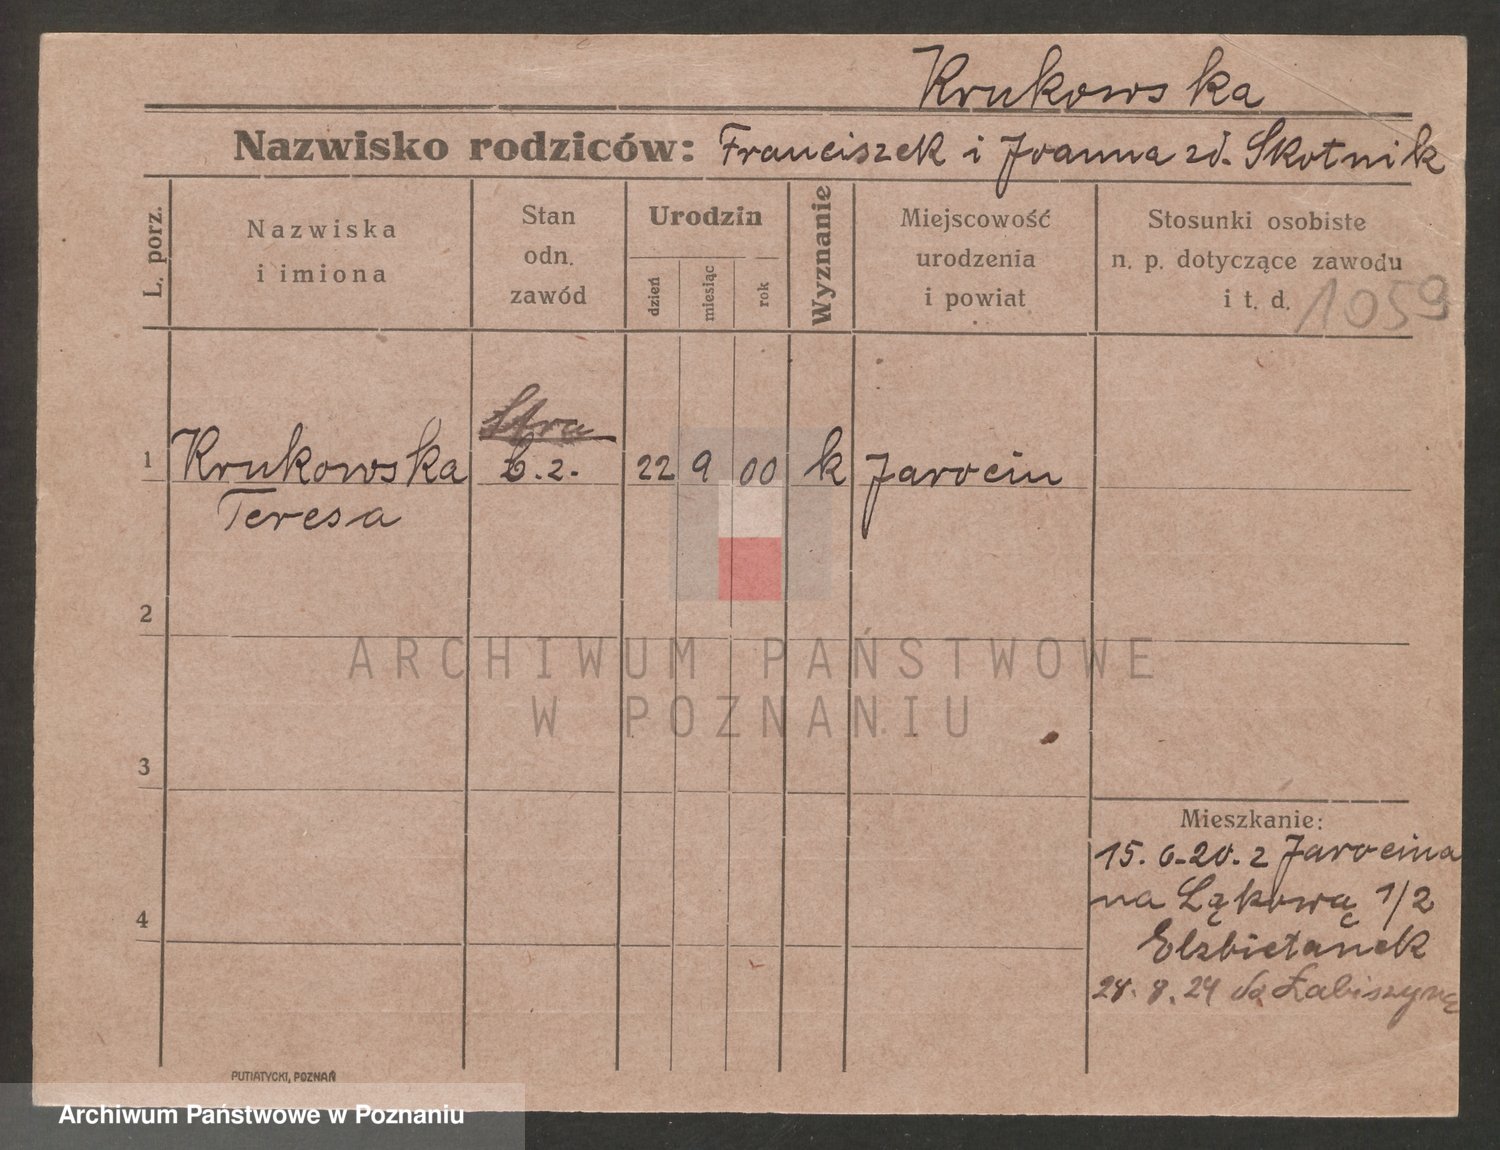 Krukowska
Nazwisko rodziców: Franciszek i Joanna zd. Skotnik
L. porz.
Nazwiska
i imiona
Stan
odn.
zawód
Urodzin
dzień
miesiąc
rok
Wyznanie
Miejscowość
urodzenia
i powiat
Stosunki osobiste
n. p. dotyczące zawodu
i t. d.
1059
1 Krukowska b.z. 22 9 00 k Jarocin
Teresa
2
3
4
Mieszkanie:
15. 6. 20. z Jarocina
na Łąkową 1/2
Elżbietanek
28. 8. 24 do Łabiszyna
PUTIATYCKI, POZNAŃ
ARCHIWUM PAŃSTWOWE
W POZNANIU
Archiwum Państwowe w Poznaniu